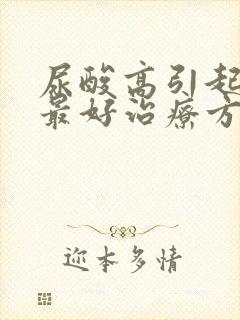 尿酸高引起
最好治療方
迩本多情